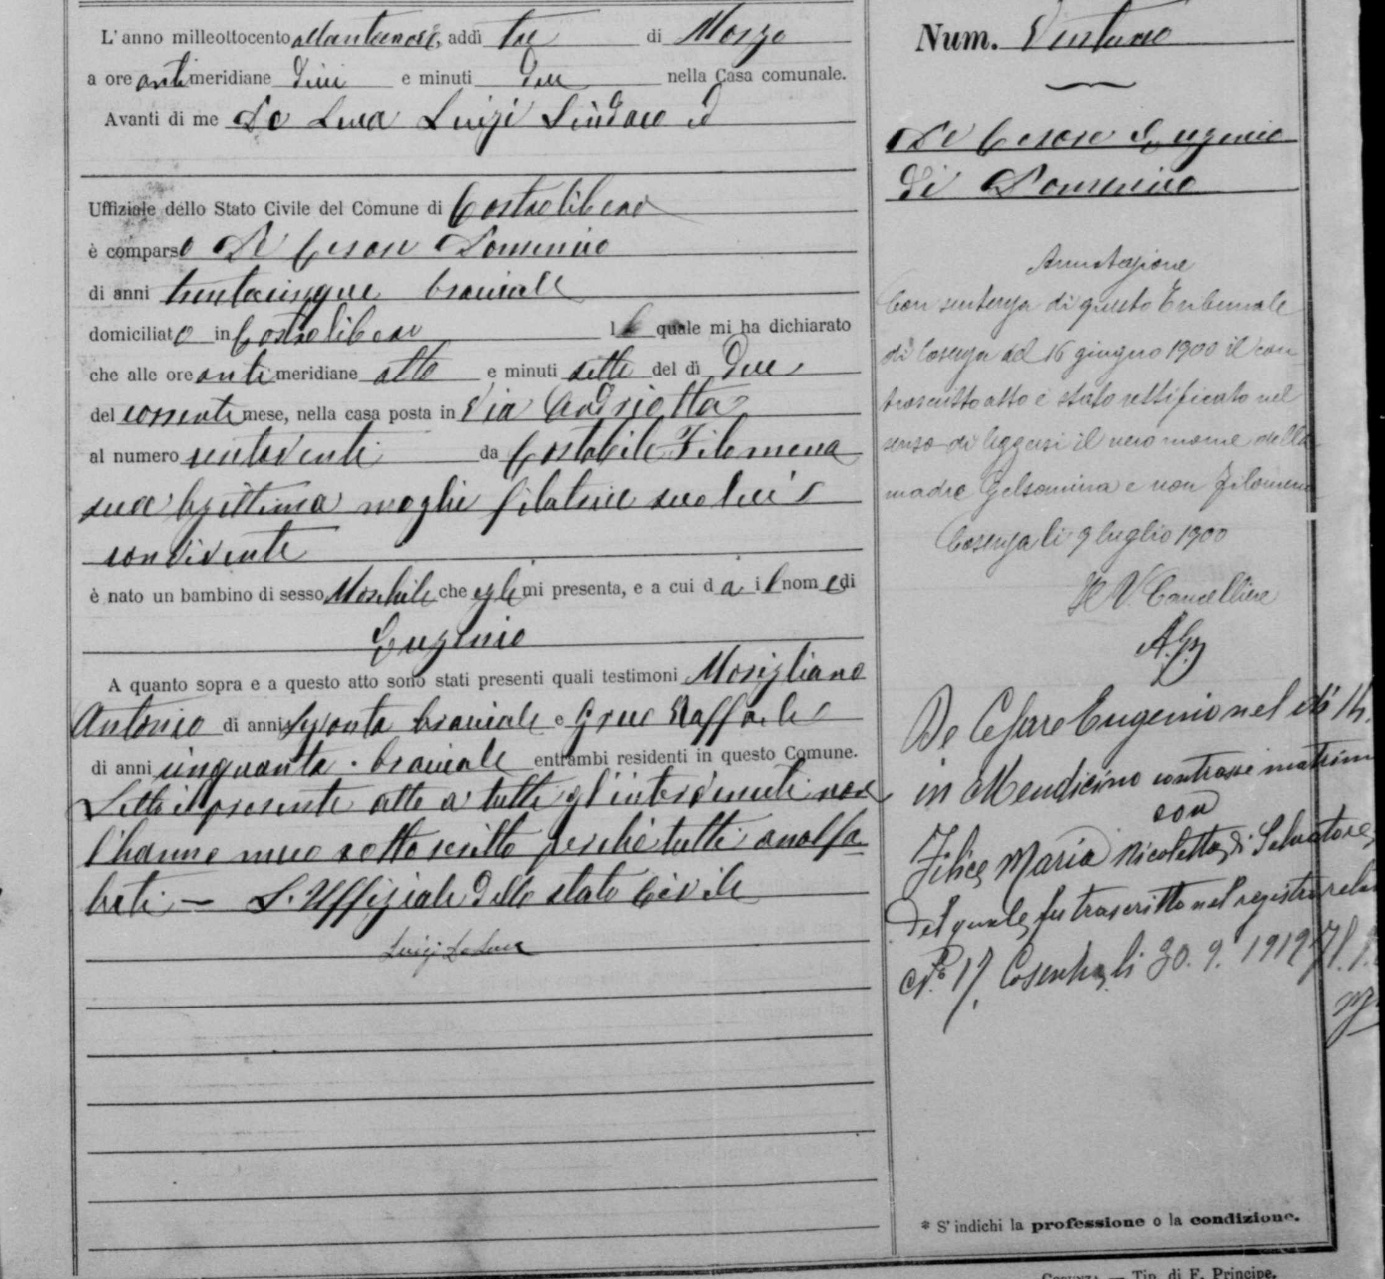 L'anno milleottocento ottantanove, addì tre di Marzo
a ore antimeridiane dieci e minuti due nella Casa comunale.
Avanti di me De Luca Luigi Sindaco ed
Uffiziale dello Stato Civile del Comune di Castrolibero
è comparso De Cesare Domenico
di anni trentacinque bracciale
domiciliato in Castrolibero l quale mi ha dichiarato
che alle ore antimeridiane otto e minuti sette del dì due
del corrente mese, nella casa posta in Via Andriotta
al numero centoventi da Costabile Filomena
sua legittima moglie filatrice seco lui
convivente
è nato un bambino di sesso Maschile che egli mi presenta, e a cui dà il nome di
Eugenio
A quanto sopra e a questo atto sono stati presenti quali testimoni Marigliano
Antonio di anni bracciale e Greco Raffaele
di anni cinquanta bracciale entrambi residenti in questo Comune.
Letto il presente atto a tutti gl'intervenuti non
l'hanno meco sottoscritto perché tutti analfa-
beti — L'Uffiziale dello stato Civile
Luigi De Luca
Num. Ventuno
De Cesare Eugenio
di Domenico
Annotazione
Con sentenza di questo Tribunale
di Cosenza del 16 giugno 1900 il con
trascritto atto è stato rettificato nel
senso di leggersi il vero nome della
madre Gelsomina e non Filomena
Cosenza li 9 luglio 1900
Il V. Cancelliere
De Cesare Eugenio nel dì 14
in Mendicino contrasse matrim
con
Felice Maria Nicoletta di Salvatore,
del quale fu trascritto nel registro
N.° 17. Cosenza, li 30. 9. 1919
* S' indichi la professione o la condizione.
Cosenza — Tip. di F. Principe.